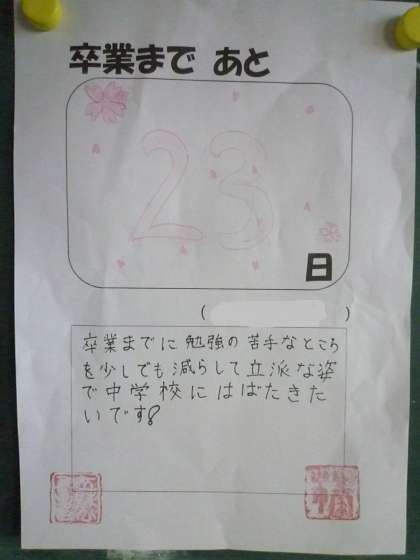 卒業まで あと
23
日
(　　　)
卒業までに勉強の苦手なところ
を少しでも減らして立派な姿
で中学校にはばたきた
いです!